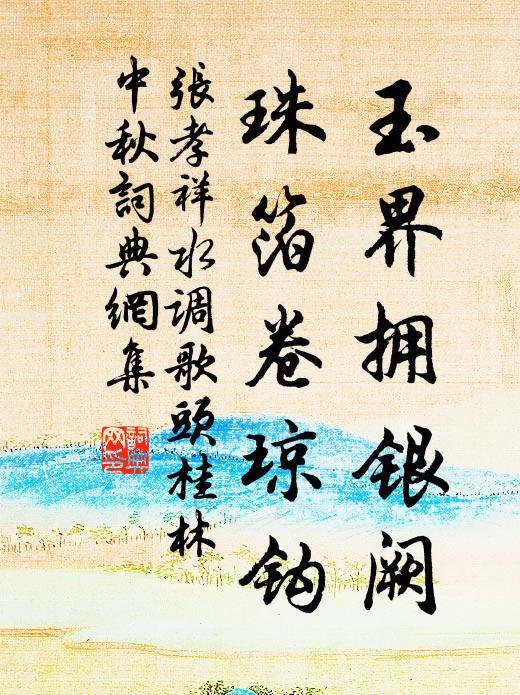 玉界拥银阙
珠箔卷琼钩
張孝祥水调歌頭桂林
中秋詞典網集